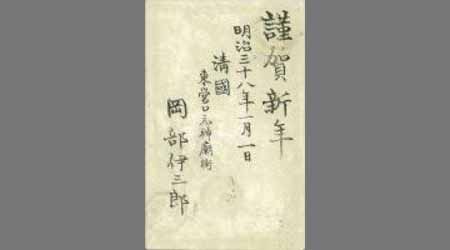 謹賀新年
明治三十八年一月一日
清國
東營口元神廟街
岡部伊三郎